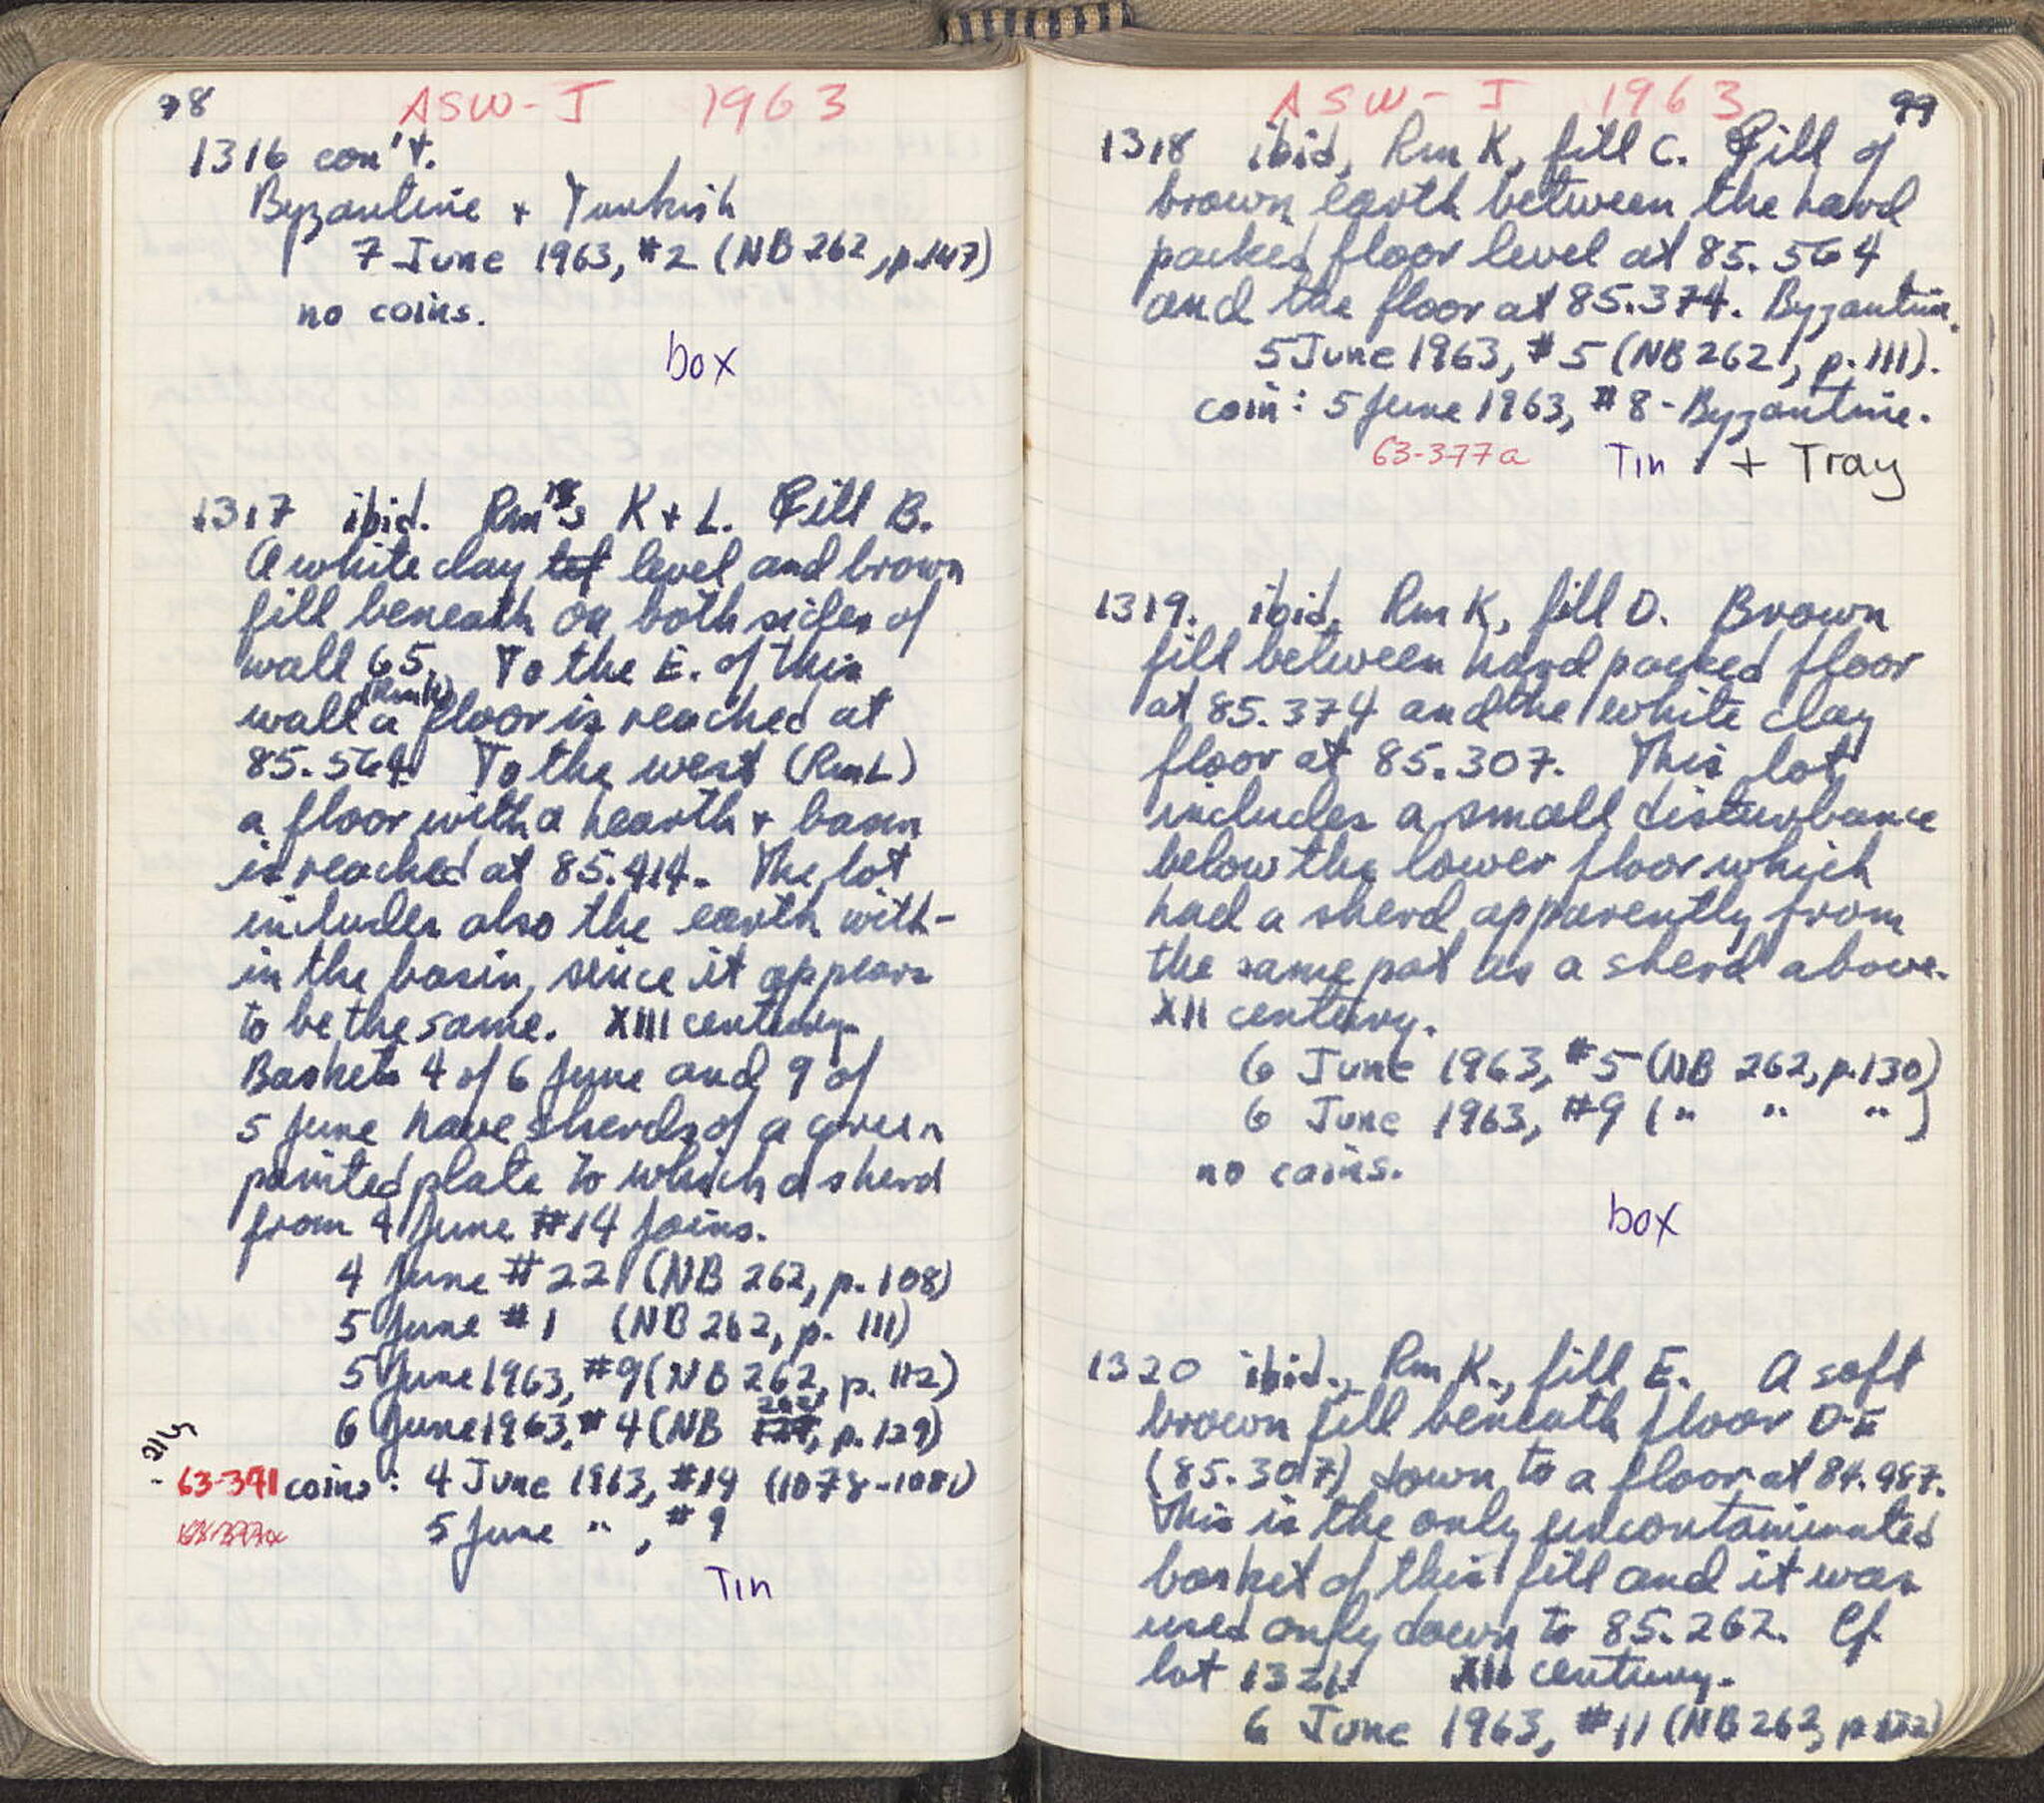 98
ASW-I 1963
1316 con't.
Byzantine + Turkish
7 June 1963, #2 (NB 262, p.147)
no coins.
box
1317 ibid. Rm's K + L. Fill B.
A white clay level and brown
fill beneath on both sides of
wall 65. To the E. of this
(Rm K)
wall a floor is reached at
85.564. To the west (Rm L)
a floor with a hearth + basin
is reached at 85.414. The lot
includes also the earth with-
in the basin, since it appears
to be the same. XIII century.
Baskets 4 of 6 June and 9 of
5 June have sherds of a green
painted plate to which a sherd
from 4 June #14 joins.
4 June #22 (NB 262, p. 108)
5 June #1 (NB 262, p. 111)
5 June 1963, #9 (NB 262, p. 112)
262
6 June 1963, #4 (NB , p.129)
63-371 coins: 4 June 1963, #14 (1078-1081)
5 June " , #9
Tin
ASW-I 1963
99
1318 ibid, Rm K, fill C. Fill of
brown earth between the hard
packed floor level at 85.564
and the floor at 85.374. Byzantine.
5 June 1963, #5 (NB 262, p. 111).
coin: 5 June 1963, #8 - Byzantine.
63-377a Tin + Tray
1319. ibid, Rm K, fill D. Brown
fill between hard packed floor
at 85.374 and the white clay
floor at 85.307. This lot
includes a small disturbance
below the lower floor which
had a sherd apparently from
the same pot as a sherd above.
XII century.
6 June 1963, #5 (NB 262, p.130)
6 June 1963, #9 (" " ")
no coins.
box
1320 ibid., Rm K., fill E. A soft
brown fill beneath floor D-E
(85.307) down to a floor at 84.987.
This is the only uncontaminated
basket of this fill and it was
used only down to 85.262. Cf.
lot 1321. XII century.
6 June 1963, #11 (NB 262, p.132)